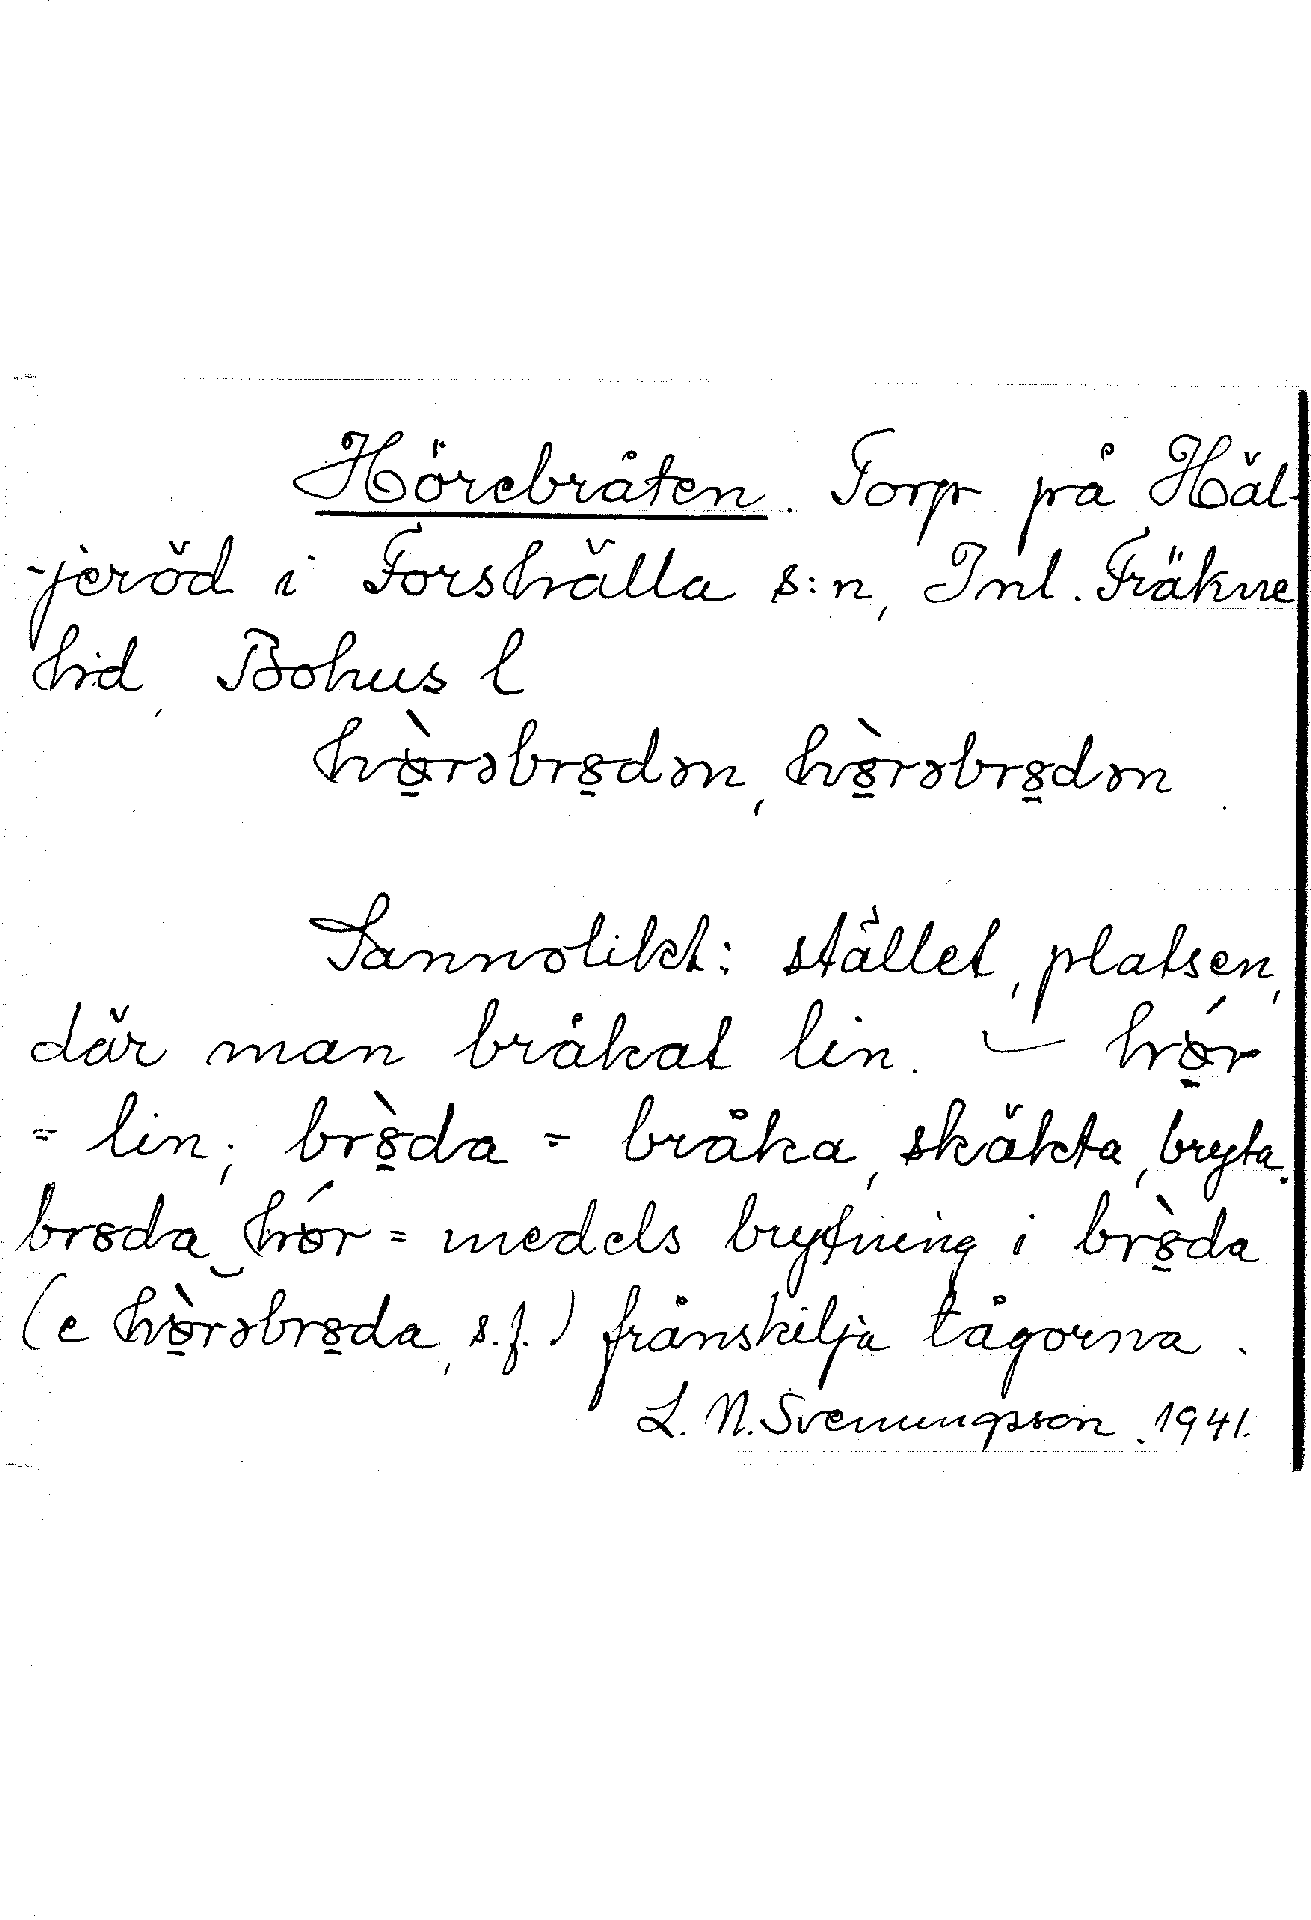 Hörebråten. Torp på Häl-
-jeröd i Forshälla s:n, Inl. Fräkne
hd, Bohus l
hø̱̀rəbrꝋ̱dən, hꝋ̱̀rəbrꝋ̱dən
Sannolikt: stället, platsen,
där man bråkat lin. – hǿ̱r
= lin; brꝋ̱̀da = bråka, skäkta, bryta.
brꝋda‿hǿr = medels brytning i brꝋ̱̀da
(e hø̱̀rəbrꝋ̱da, s.f.) frånskilja tågorna.
L. N. Svenungsson. 1941.